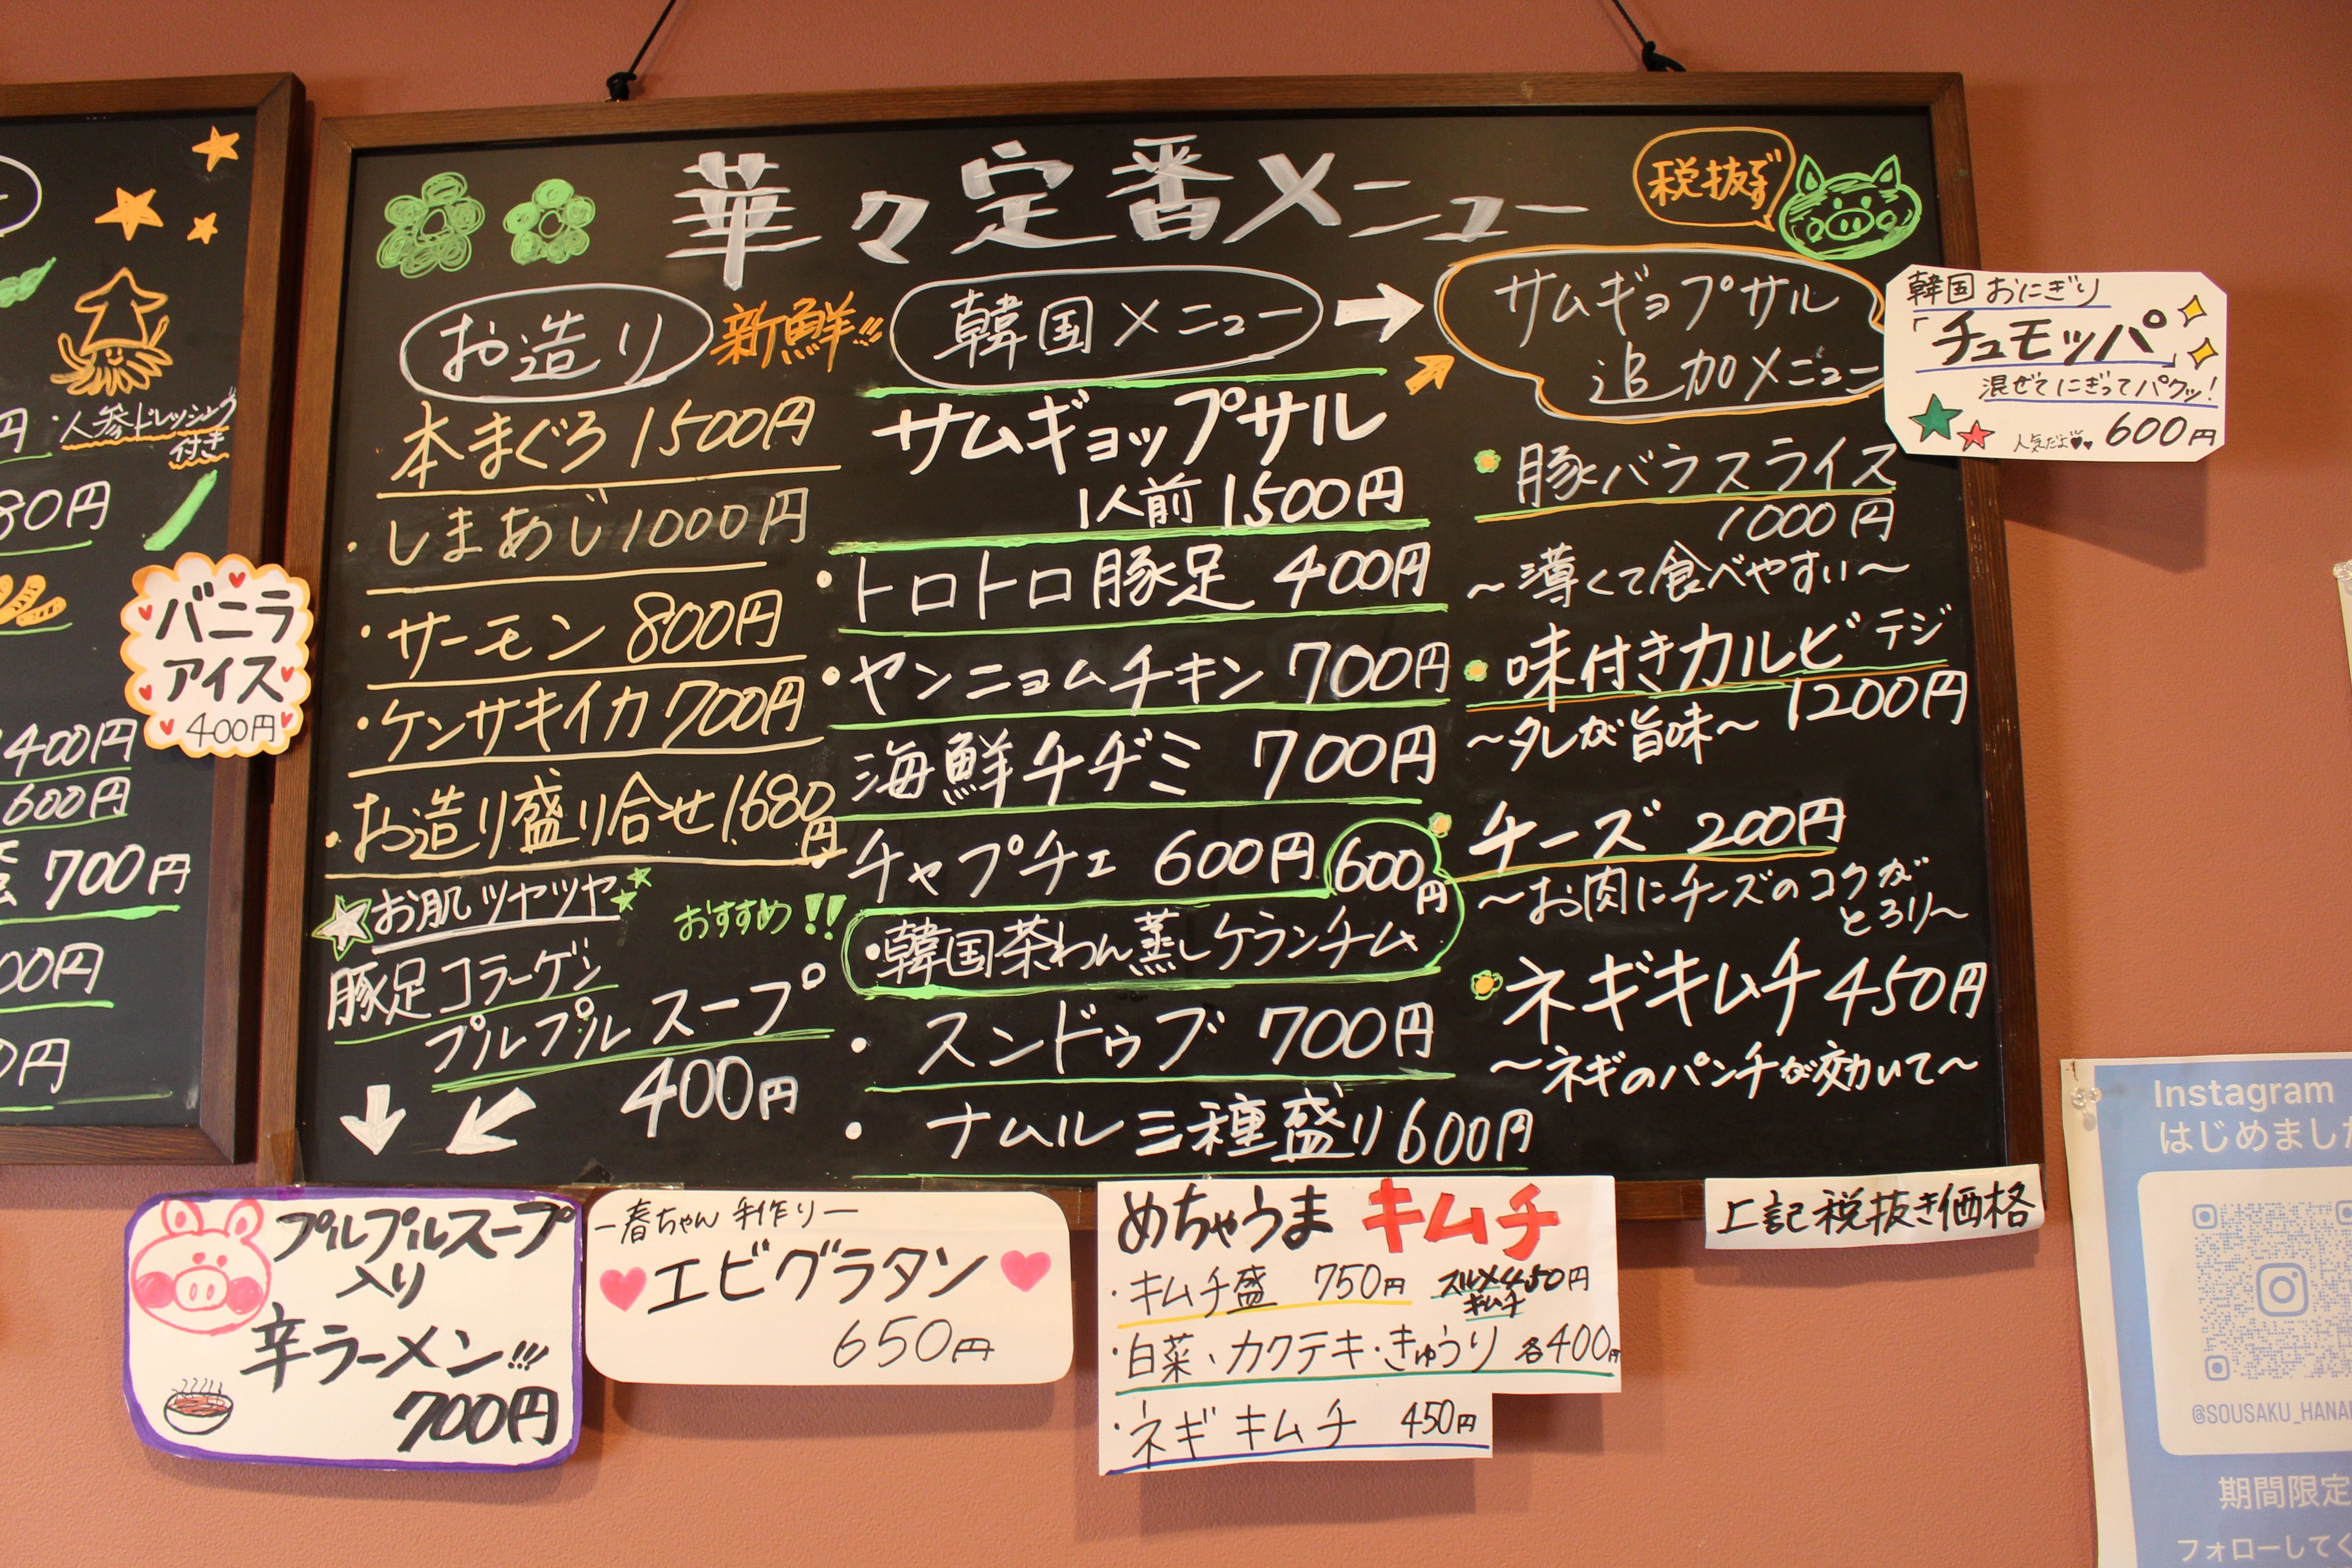 華々定番メニュー
税抜ずず
お造り
新鮮!!!
本まぐろ 1500円
・しまあじ 1000円
・サーモン 800円
・ケンサキイカ 700円
・お造り盛り合せ 1,680円
お肌ツヤツヤ
豚足コラーゲン
プルプルスープ
400円
おすすめ!!
韓国メニュー
サムギョップサル
1人前 1500円
・トロトロ豚足 400円
・ヤンニョムチキン 700円
海鮮チヂミ 700円
・チャプチェ 600円
・韓国茶わん蒸しケランチム
600円
・スンドゥブ 700円
・ナムル三種盛り 600円
サムギョプサル
追加メニュー
豚バラスライス
1000円
〜薄くて食べやすい〜
味付きカルビ テジ
1200円
〜タレが旨味〜
チーズ 200円
〜お肉にチーズのコクが
とろり〜
ネギキムチ 450円
〜ネギのパンチが効いて〜
韓国おにぎり
「チュモッパ」
混ぜてにぎってパクッ!
人気だよ 600円
・人参ドレッシング
付き
80円
バニラ
アイス
400円
400円
600円
700円
00円
0円
プルプルスープ
入り
辛ラーメン!!!
700円
―春ちゃん手作り―
エビグラタン
650円
めちゃうま キムチ
・キムチ盛 750円
スルメキムチ 450円
・白菜、カクテキ・きゅうり 各400円
・ネギキムチ 450円
上記税抜き価格
Instagram
はじめまし
@SOUSAKU_HANA
期間限定
フォローしてく